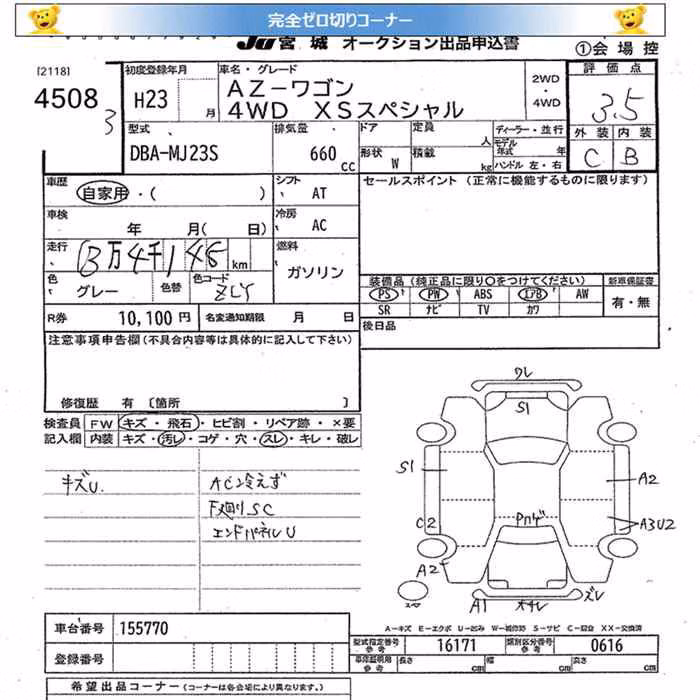 完全ゼロ切りコーナー
JU 宮城 オークション出品申込書
①会場控
[2118]
4508
3
初度登録年月
H23 月
車名・グレード
AZ-ワゴン
4WD XSスペシャル
2WD
・
4WD
評価点
3.5
外装 内装
C B
型式
DBA-MJ23S
排気量
660 cc
ドア
定員 人
形状 W
積載 kg
ディーラー・並行
モデル年式 年
ハンドル 左・右
車歴
自家用・( )
シフト
AT
セールスポイント (正常に機能するものに限ります)
車検
年 月( 日)
冷房
AC
走行
3万4千148 km
燃料
ガソリン
色
グレー
色替
色コード
ZLY
装備品 (純正品に限り○をつけてください)
新車保証書
PS PW ABS エアB AW
SR ナビ TV カワ
有・無
R券
10,100円
名変通知期限 月 日
後日品
注意事項申告欄 (不具合内容等は具体的に記入して下さい)
修復歴 有 〔箇所 〕
検査員
記入欄
FW キズ・飛石・ヒビ割・リペア跡・×要
内装 キズ・汚レ・コゲ・穴・スレ・キレ・破レ
キズU.
AC冷えず
F廻りSC
エンドパネルU
ワレ
S1
S1
A2
C2
Pハゲ
A3U2
A2
A1
ズレ
A-キズ E-エクボ U-凹み W-補修跡 S-サビ C-腐食 XX-交換済
車台番号
155770
型式指定番号
参考
16171
類別区分番号
参考
0616
登録番号
車庫証明用
参考
長さ cm
幅 cm
高さ cm
希望出品コーナー (コーナーは各会場により異なります。)